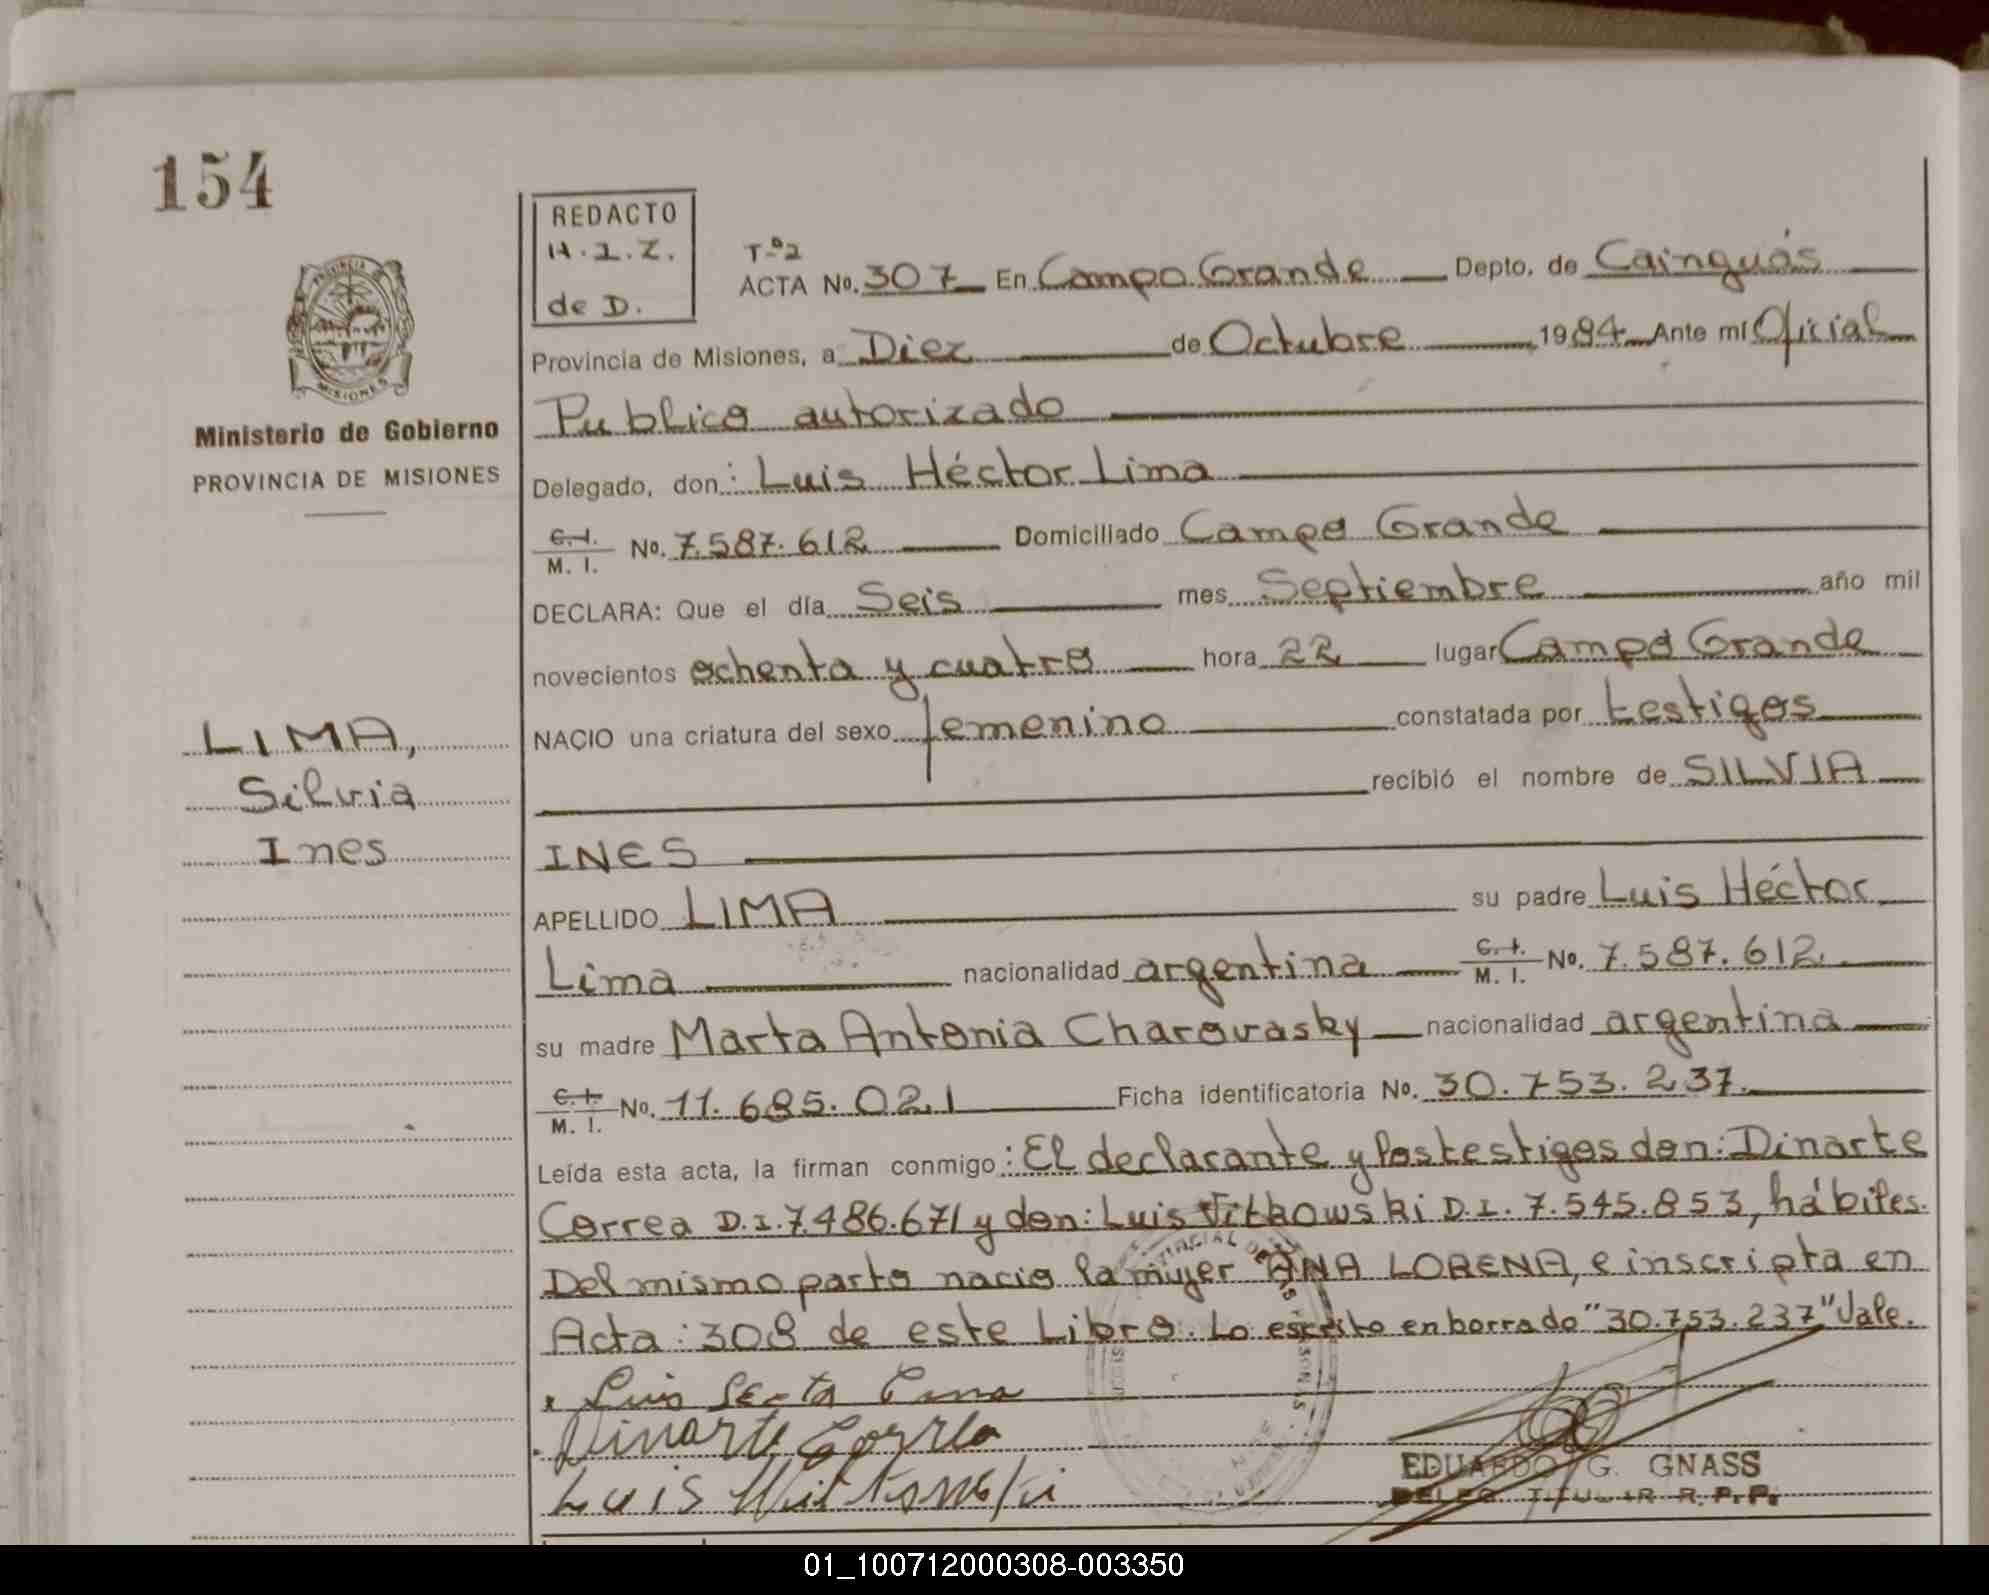 154
REDACTO
H.I.Z.
de D.
Tº2
ACTA No. 307 En Campo Grande Depto. de Cainguás
Provincia de Misiones, a Diez de Octubre 1984 Ante mí Oficial
Publico autorizado
PROVINCIA DE
MISIONES
Ministerio de Gobierno
PROVINCIA DE MISIONES
Delegado, don: Luis Héctor Lima
C.I. M. I. No. 7.587.612 Domiciliado Campo Grande
DECLARA: Que el día Seis mes Septiembre año mil
novecientos ochenta y cuatro hora 22 lugar Campo Grande
LIMA,
Silvia
Ines
NACIO una criatura del sexo femenino constatada por testigos
recibió el nombre de SILVIA
INES
APELLIDO LIMA su padre Luis Héctor
Lima nacionalidad argentina C.I. M. I. No. 7.587.612
su madre Marta Antonia Charovasky nacionalidad argentina
C.I. M. I. No. 11.685.021 Ficha identificatoria No. 30.753.237.
Leída esta acta, la firman conmigo: El declarante y los testigos don: Dinarte
Correa D.I. 7.486.671 y don: Luis Vitkowski D.I. 7.545.853, hábiles.
Del mismo parto nacio la mujer ANA LORENA, e inscripta en
Acta: 308 de este Libro. Lo escrito en borrado "30.753.237" Vale.
Dinarte Correa
Luis
EDUARDO G. GNASS
DELEG. TITULAR R. P. P.
01_100712000308-003350